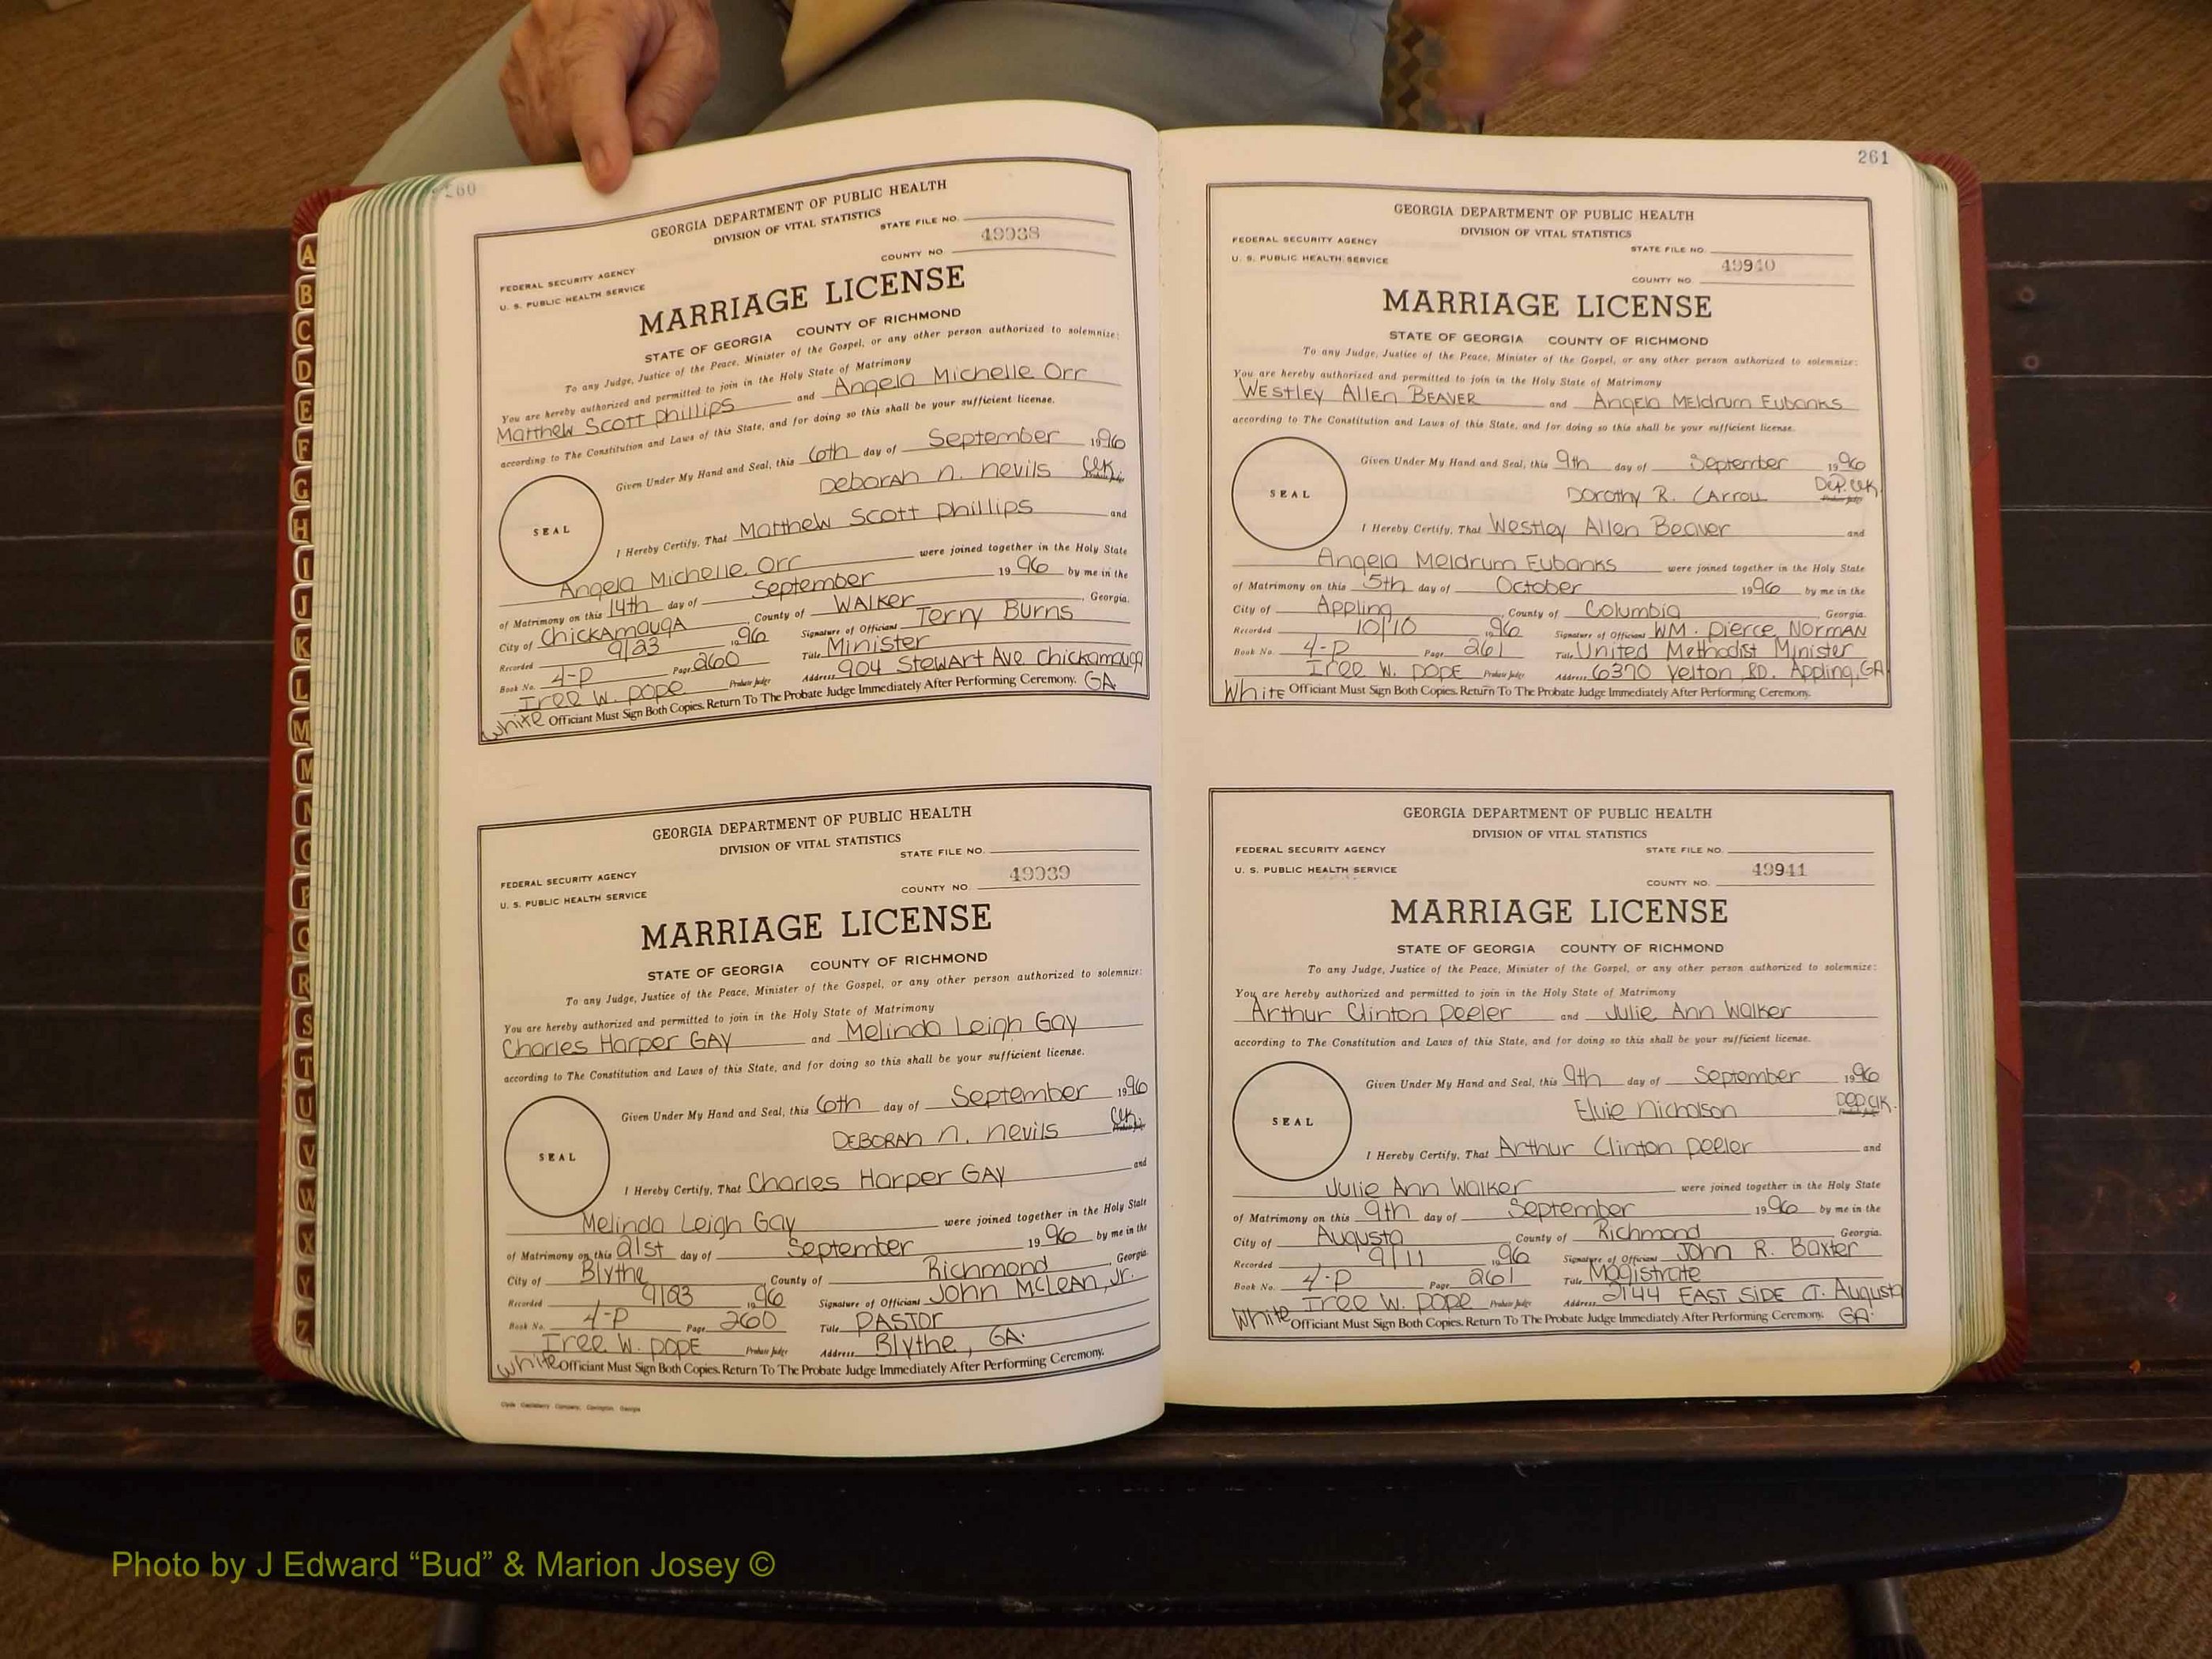 A
B
C
D
E
F
G
H
I
J
K
L
M
N
O
P
Q
R
S
T
U
V
W
X
Y
Z
260
GEORGIA DEPARTMENT OF PUBLIC HEALTH
DIVISION OF VITAL STATISTICS
STATE FILE NO.
49938
FEDERAL SECURITY AGENCY
COUNTY NO.
U. S. PUBLIC HEALTH SERVICE
MARRIAGE LICENSE
STATE OF GEORGIA COUNTY OF RICHMOND
To any Judge, Justice of the Peace, Minister of the Gospel, or any other person authorized to solemnize:
You are hereby authorized and permitted to join in the Holy State of Matrimony
Matthew Scott Phillips and Angela Michelle Orr
according to The Constitution and Laws of this State, and for doing so this shall be your sufficient license.
Given Under My Hand and Seal, this 6th day of September 1996
Deborah N. Nevils Clk.
SEAL
I Hereby Certify, That Matthew Scott Phillips and
Angela Michelle Orr were joined together in the Holy State
of Matrimony on this 14th day of September 1996 by me in the
City of Chickamauga, County of Walker, Georgia.
Recorded 9/23 1996 Signature of Officiant Terry Burns
Book No. 4-P Page 260 Title Minister
Iree W. Pope Probate Judge Address 904 Stewart Ave Chickamauga
White Officiant Must Sign Both Copies. Return To The Probate Judge Immediately After Performing Ceremony. GA
GEORGIA DEPARTMENT OF PUBLIC HEALTH
DIVISION OF VITAL STATISTICS
STATE FILE NO.
49939
FEDERAL SECURITY AGENCY
COUNTY NO.
U. S. PUBLIC HEALTH SERVICE
MARRIAGE LICENSE
STATE OF GEORGIA COUNTY OF RICHMOND
To any Judge, Justice of the Peace, Minister of the Gospel, or any other person authorized to solemnize:
You are hereby authorized and permitted to join in the Holy State of Matrimony
Charles Harper Gay and Melinda Leigh Gay
according to The Constitution and Laws of this State, and for doing so this shall be your sufficient license.
Given Under My Hand and Seal, this 6th day of September 1996
Deborah N. Nevils Clk.
SEAL
I Hereby Certify, That Charles Harper Gay and
Melinda Leigh Gay were joined together in the Holy State
of Matrimony on this 21st day of September 1996 by me in the
City of Blythe, County of Richmond, Georgia.
Recorded 9/23 1996 Signature of Officiant John McLean, Jr.
Book No. 4-P Page 260 Title Pastor
Iree W. Pope Probate Judge Address Blythe, GA.
White Officiant Must Sign Both Copies. Return To The Probate Judge Immediately After Performing Ceremony.
261
GEORGIA DEPARTMENT OF PUBLIC HEALTH
DIVISION OF VITAL STATISTICS
FEDERAL SECURITY AGENCY
STATE FILE NO.
49940
U. S. PUBLIC HEALTH SERVICE
COUNTY NO.
MARRIAGE LICENSE
STATE OF GEORGIA COUNTY OF RICHMOND
To any Judge, Justice of the Peace, Minister of the Gospel, or any other person authorized to solemnize:
You are hereby authorized and permitted to join in the Holy State of Matrimony
Westley Allen Beaver and Angela Meldrum Eubanks
according to The Constitution and Laws of this State, and for doing so this shall be your sufficient license.
Given Under My Hand and Seal, this 9th day of September 1996
Dorothy R. Carroll Dep. Clk.
SEAL
I Hereby Certify, That Westley Allen Beaver and
Angela Meldrum Eubanks were joined together in the Holy State
of Matrimony on this 5th day of October 1996 by me in the
City of Appling, County of Columbia, Georgia.
Recorded 10/10 1996 Signature of Officiant Wm. Pierce Norman
Book No. 4-P Page 261 Title United Methodist Minister
Iree W. Pope Probate Judge Address 6370 Yelton RD. Appling, GA
White Officiant Must Sign Both Copies. Return To The Probate Judge Immediately After Performing Ceremony.
GEORGIA DEPARTMENT OF PUBLIC HEALTH
DIVISION OF VITAL STATISTICS
FEDERAL SECURITY AGENCY
STATE FILE NO.
49941
U. S. PUBLIC HEALTH SERVICE
COUNTY NO.
MARRIAGE LICENSE
STATE OF GEORGIA COUNTY OF RICHMOND
To any Judge, Justice of the Peace, Minister of the Gospel, or any other person authorized to solemnize:
You are hereby authorized and permitted to join in the Holy State of Matrimony
Arthur Clinton Peeler and Julie Ann Walker
according to The Constitution and Laws of this State, and for doing so this shall be your sufficient license.
Given Under My Hand and Seal, this 9th day of September 1996
Elvie Nicholson Dep Clk.
SEAL
I Hereby Certify, That Arthur Clinton Peeler and
Julie Ann Walker were joined together in the Holy State
of Matrimony on this 9th day of September 1996 by me in the
City of Augusta, County of Richmond, Georgia.
Recorded 9/11 1996 Signature of Officiant John R. Baxter
Book No. 4-P Page 261 Title Magistrate
Iree W. Pope Probate Judge Address 2144 East Side Ct. Augusta
White Officiant Must Sign Both Copies. Return To The Probate Judge Immediately After Performing Ceremony. GA.
Photo by J Edward “Bud” & Marion Josey ©